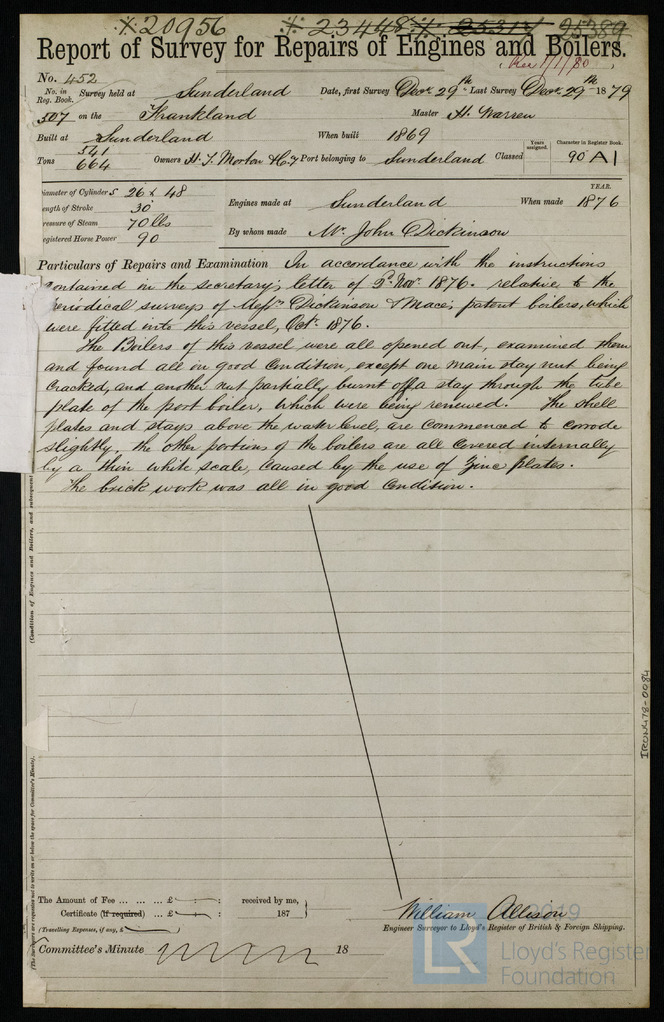 ⁒ 20956 ⁒ 23448 ⁒ 25313 25389
Report of Survey for Repairs of Engines and Boilers.
Rec 1/1/80
No. 452
No. in Reg. Book. Survey held at Sunderland Date, first Survey Decr. 29th Last Survey Decr. 29th 1879
507 on the Frankland Master H. Warren
Built at Sunderland When built 1869
Tons 541 664 Owners H. T. Morton & Co Port belonging to Sunderland Classed Years assigned. Character in Register Book. 90 A1
Diameter of Cylinders 26 x 48
Length of Stroke 30
Pressure of Steam 70 lbs
Registered Horse Power 90
Engines made at Sunderland When made YEAR. 1876
By whom made Mr. John Dickinson
Particulars of Repairs and Examination In accordance with the instructions
contained in the secretary's letter of Nov. 1876. relative to the
periodical surveys of Messrs Dickinson & Mace's patent boilers, which
were fitted into this vessel, Oct. 1876.
The Boilers of this vessel were all opened out, examined them
and found all in good Condition, except one main stay nut being
Cracked, and another nut partially burnt off a stay through the tube
plate of the port boiler, which were being renewed. The shell
plates and stays above the water level, are commenced to corrode
slightly, the other portions of the boilers are all Covered internally
by a thin white scale, Caused by the use of Zinc plates.
The brick work was all in good Condition.
(Condition of Engines and Boilers, and subsequent
IRON478-0084
The Amount of Fee ... ... ... £ : : received by me,
Certificate (if required) ... £ : : 187
(Travelling Expenses, if any, £ )
Committee's Minute 18
William Allison
Engineer Surveyor to Lloyd's Register of British & Foreign Shipping.
2019
LR
Lloyd's Register
Foundation